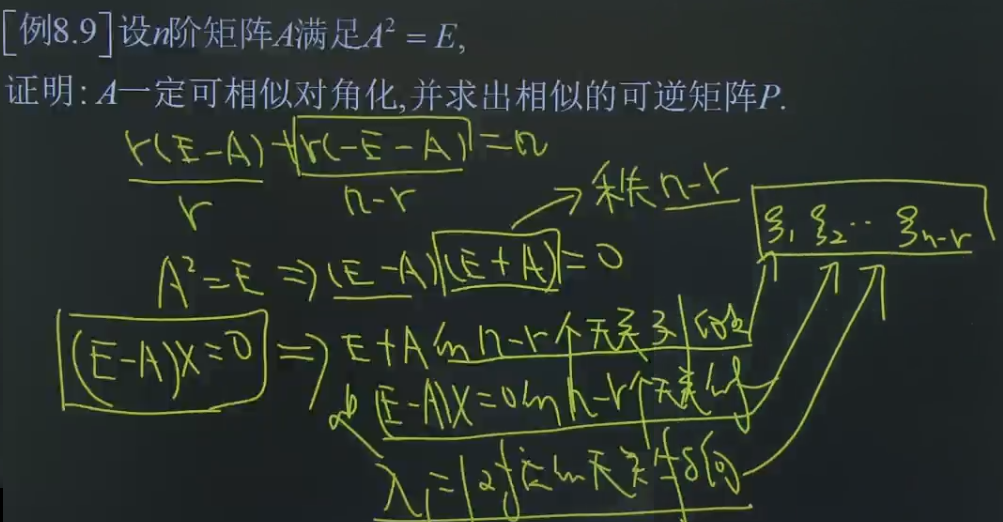 [例8.9]设n阶矩阵A满足A² = E,
证明: A一定可相似对角化,并求出相似的可逆矩阵P.
r(E-A)+r(-E-A)=n
r n-r
→ 秩 n-r
ξ₁ ξ₂ ⋯ ξₙ₋ᵣ
A²=E ⇒ (E-A)(E+A)=0
(E-A)X=0 ⇒ E+A 的 n-r个无关列向量
(E-A)X=0的n-r个无关解
λ₁=1 对应的无关特向